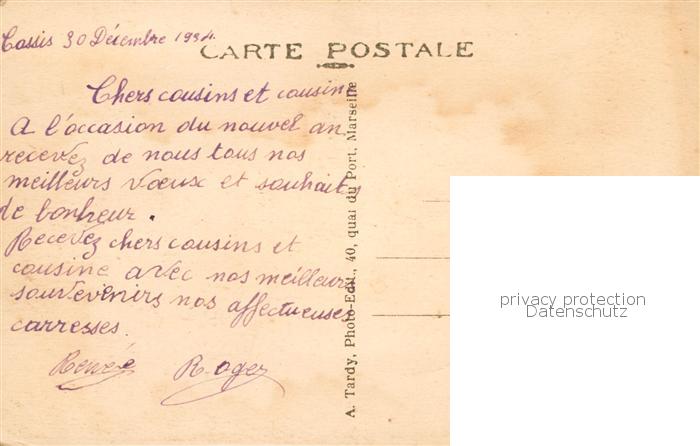 Cassis 30 Décembre 1934.
CARTE POSTALE
Chers cousins et cousine
A l'occasion du nouvel an
recevez de nous tous nos
meilleurs vœux et souhaits
de bonheur.
Recevez chers cousins et
cousine avec nos meilleurs
souvenirs nos affectueuses
carresses.
Renée Roger
A. Tardy, Photo-Edit., 40, quai du Port, Marseille
privacy protection
Datenschutz